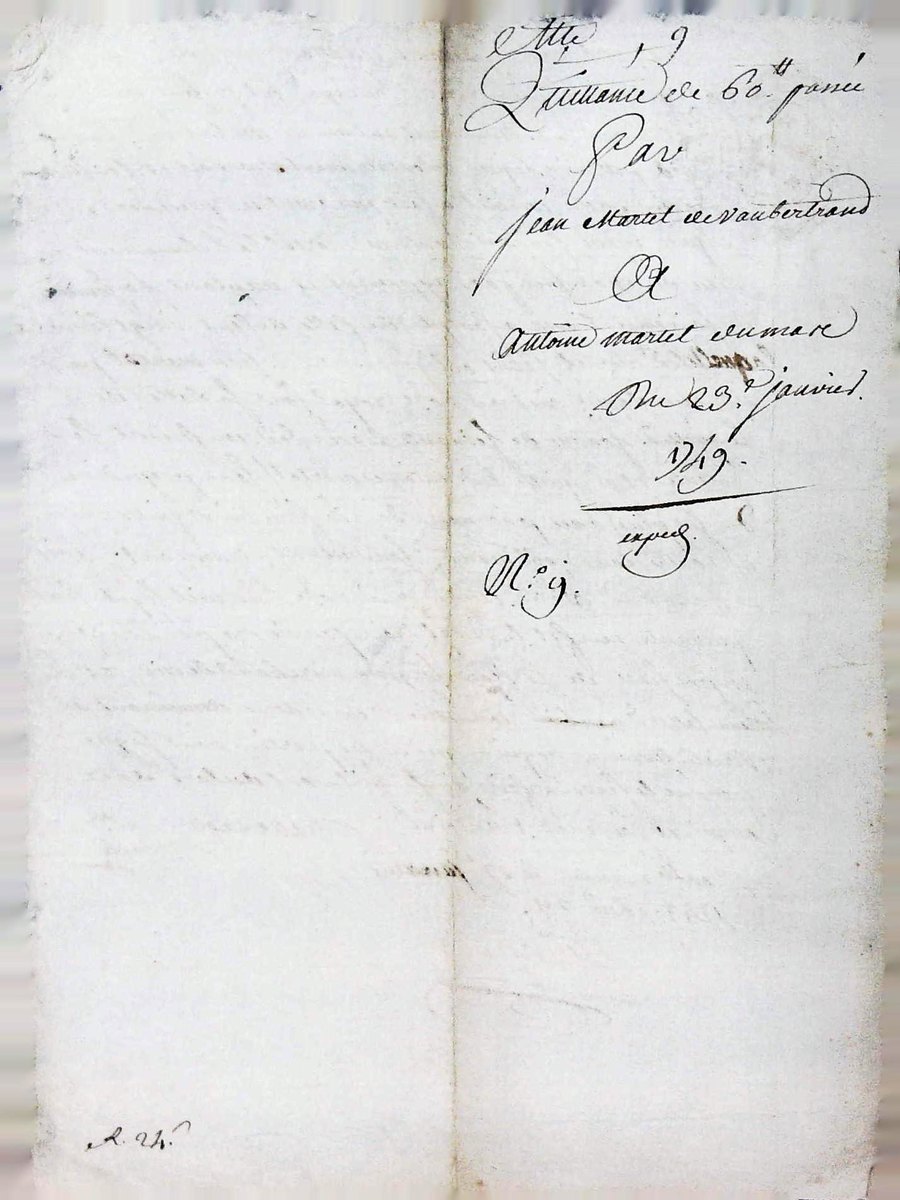 Cotte 9
Quittance de 60.tt passée
Par
jean Martel de Vaubertrand
A
Antoine martel dumare
Du 23.e janvier.
1749.
exped.
N.o 9.
R. 24.s